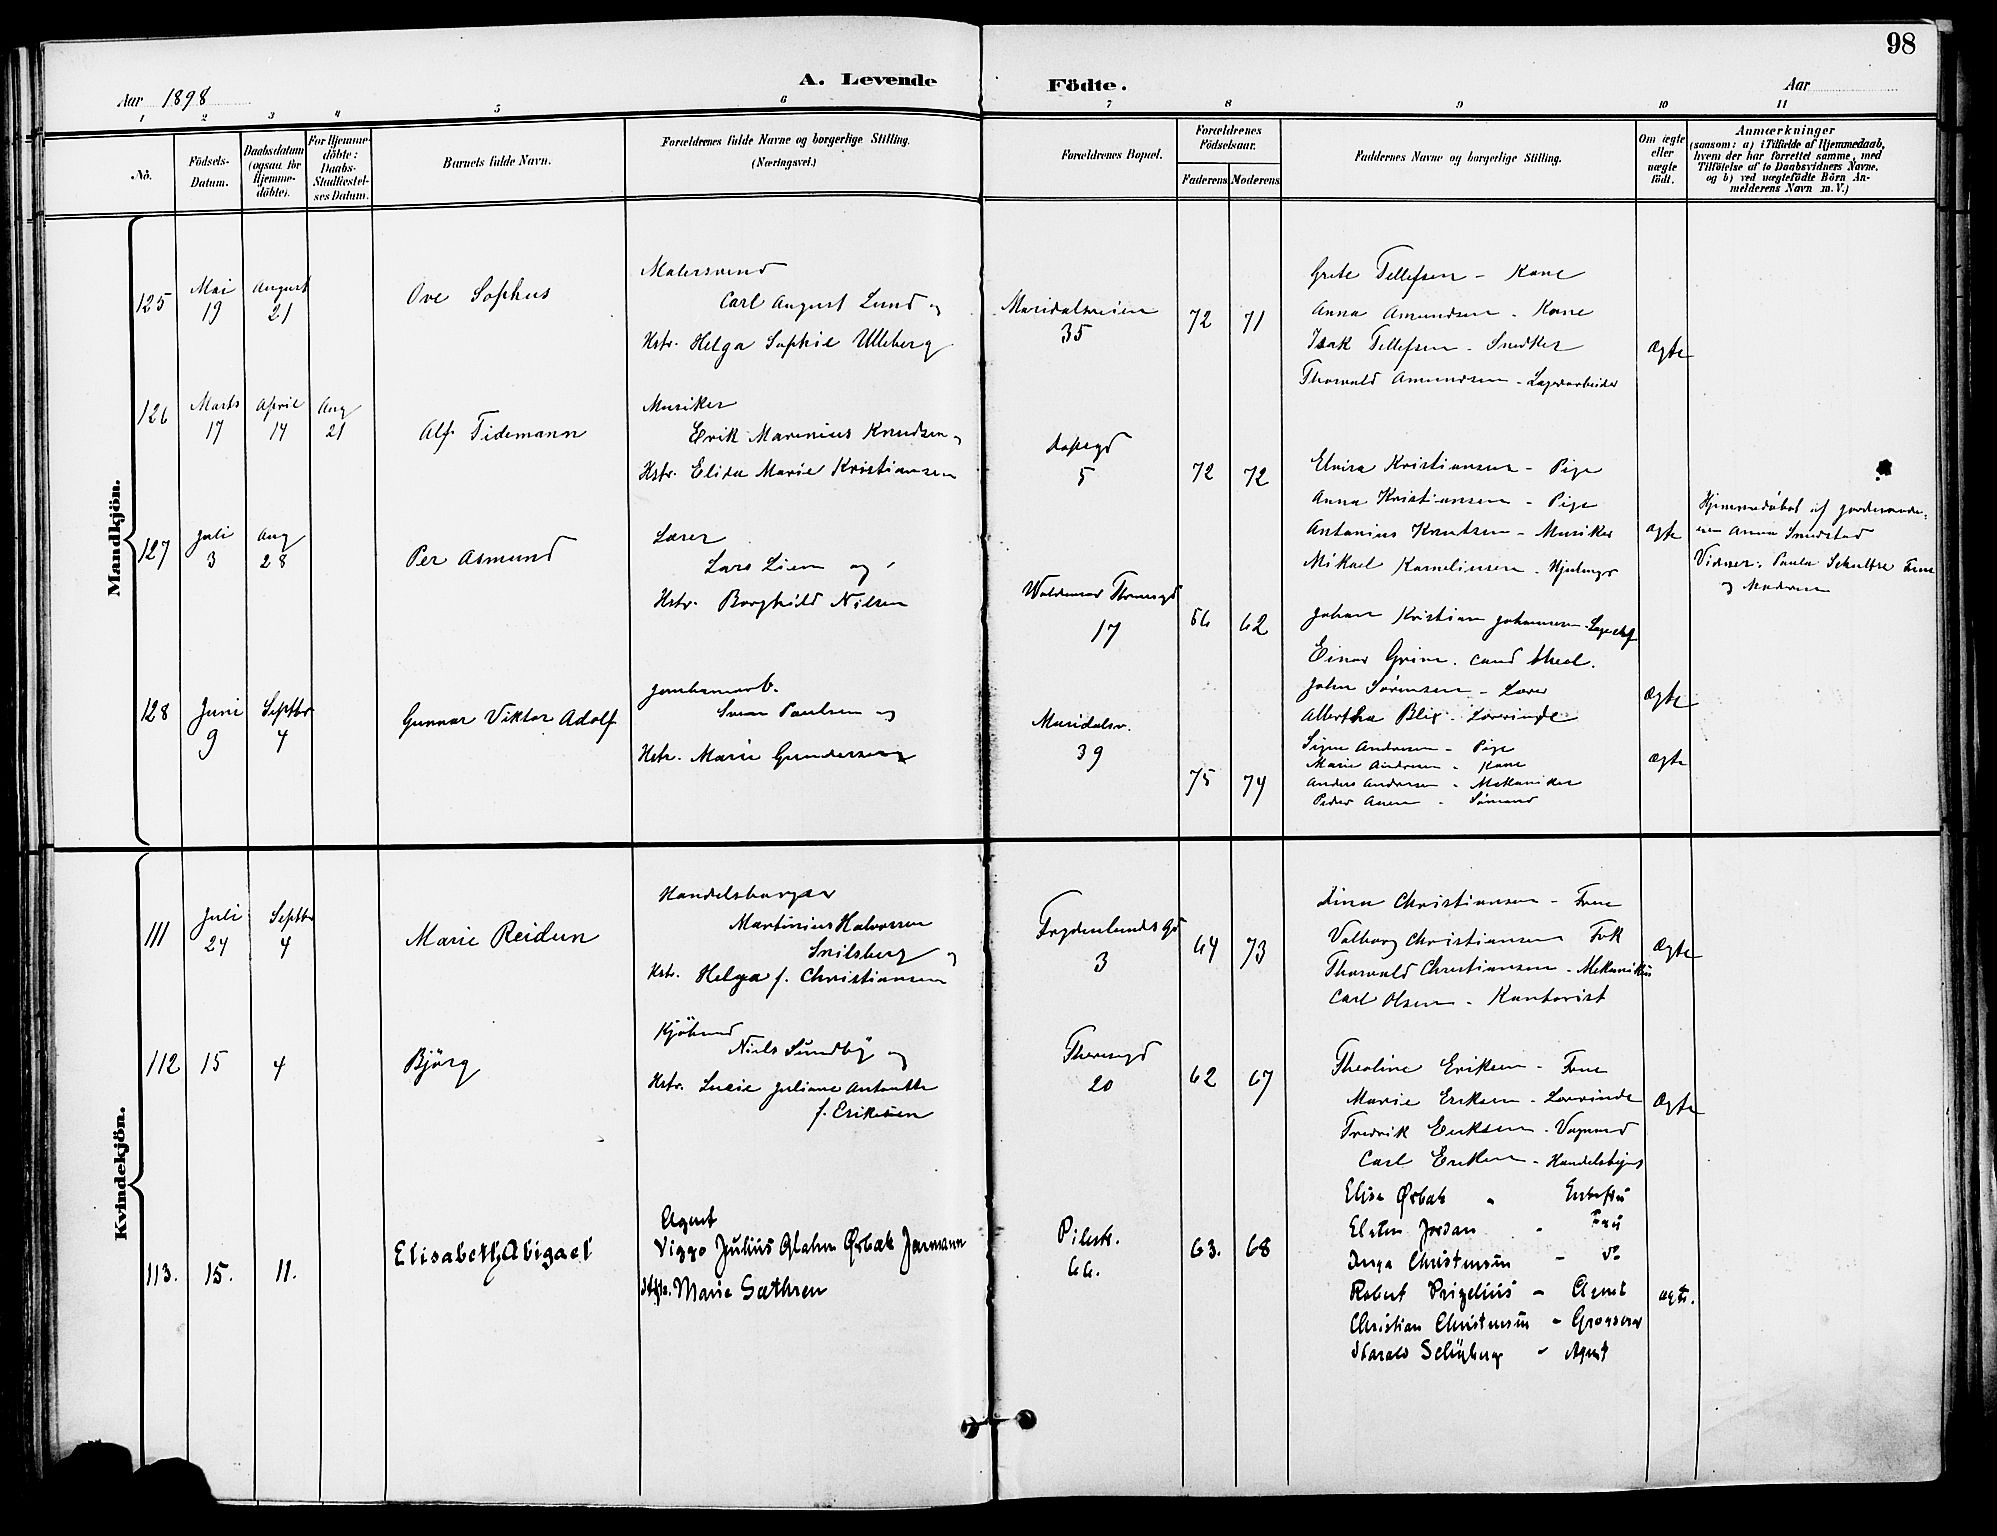 98
A. Levende Födte.
Aar 1898
Aar
1 2 3 4 5 6 7 8 9 10 11
No.
Födsels-Datum.
Daabsdatum (ogsaa for Hjemme-döbte).
For Hjemme-döbte: Daabs-Stadfæstel-ses Datum.
Barnets fulde Navn.
Forældrenes fulde Navne og borgerlige Stilling. (Næringsvei.)
Forældrenes Bopæl.
Forældrenes Födselsaar.
Faderens Moderens
Faddernes Navne og borgerlige Stilling.
Om ægte eller uægte födt.
Anmærkninger (saasom: a) i Tilfælde af Hjemmedaab, hvem der har forrettet samme, med Tilföielse af to Daabsvidners Navne, og b) ved uægtefödte Börn An-melderens Navn m. V.)
Mandkjön.
125
Mai 19
August 21
Ove Sophus
Malersvend
Carl August Lund og
Hstr. Helga Sophie Ulleberg
Maridalsveien 35
72 71
Grete Tellefsen - Kone
Anna Amundsen - Kone
Isak Tellefsen - Snedker
Thorvald Amundsen - Lagerarbeider
Ægte
126
Marts 17
April 14
Aug 21
Alf Tidemann
Musiker
Erik Marenius Knudsen og
Hstr. Elida Marie Kristiansen
5
72 72
Elvira Kristiansen - Pige
Anna Kristiansen - Pige
Antonius Knutsen - Musiker
Mikael Kornelius­sen -
ægte
Hjemmedøbt af jordemode-
ren Anna Smedstad
Vidner: Paula Schultse Frue
og Moderen
127
Juli 3
Aug 28
Per Asmund
Lærer
Lars Lien og
Hstr. Borghild Nilsen
Waldemar Thranesgd 17
66 62
Johan Kristian Johannesen
Einar Grim cand theol.
John Sørensen - Lærer
Albertha Blix - Lærerinde
Ægte
128
Juni 9
Septbr 4
Gunnar Viktor Adolf
Jernbanearb.
Sven Paulsen og
Hstr. Marie Gundersen
Maridalsv. 39
75 74
Signe Andersen - Pige
Marie Andersen - Kone
Anders Andersen - Mekaniker
Peder - Sømand
Ægte
Kvindekjön.
111
Juli 24
Septbr 4
Marie Reidun
Handelsborger
Martinius Halvorsen
Snilsberg og
Hstr. Helga f. Christiansen
Frydenlundsgd 3
64 73
Lina Christiansen - Frue
Valborg Christiansen Frk
Thorvald Christiansen - Mekaniker
Carl Olsen - Kontorist
Ægte
112
15
4
Bjørg
Kjøbmd
Niels Sundby og
Hstr. Lucie Juliane Antonette
f. Eriksen
Theresegd 20
62 67
Theoline Eriksen - Frue
Marie Eriksen - Lærerinde
Fredrik Eriksen -
Carl Eriksen - Handelsbgr
Ægte
113.
15.
11.
Elisabeth Abigael
Agent
Viggo Julius Glahn Ørbæk Jarmann
Hstr. Marie Sæthren
Pilestr. 66.
63. 68
Elise Ørbæk - Enkefru
Elsten Jordan - Fru
Inga Christensen - do
Robert Prizelius - Agent
Christian Christensen - Grosserer
Harald Schüzberg - Agent
ægte.